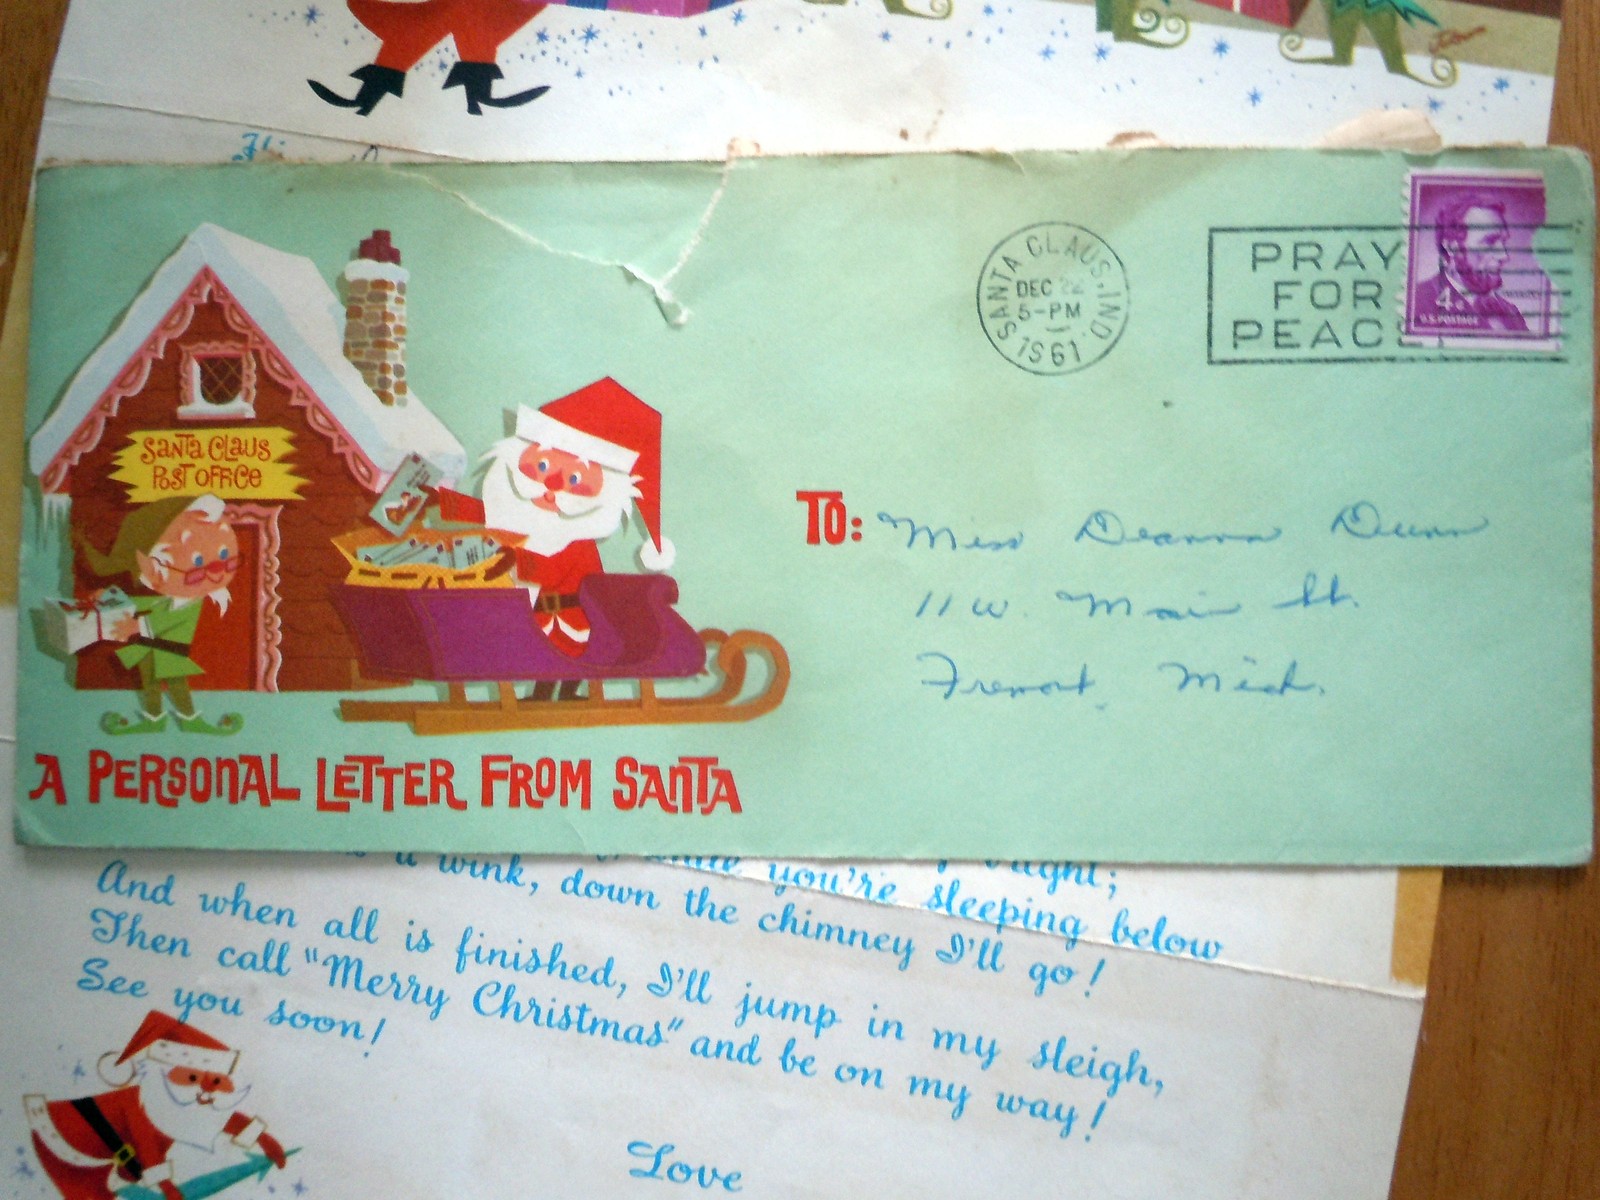 SANTA CLAUS, IND.
DEC 22
5-PM
1961
PRAY
FOR
PEACE
4¢
U.S. POSTAGE
Santa Claus
Post Office
TO: Miss Deanna Dunn
11 W. Main St.
Fremont, Mich.
A PERSONAL LETTER FROM SANTA
you're sleeping below
a wink, down the chimney I'll go!
And when all is finished, I'll jump in my sleigh,
Then call "Merry Christmas" and be on my way!
See you soon!
Love